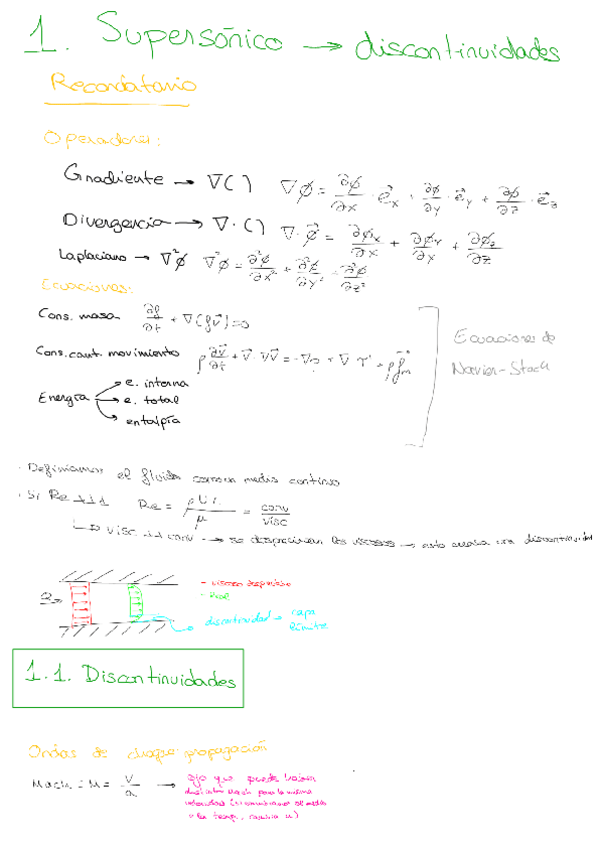 1. Supersónico → discontinuidades
Recordatorio
Operadores:
Gradiente → ∇( ) ∇φ = ∂φ/∂x · e⃗x + ∂φ/∂y · e⃗y + ∂φ/∂z · e⃗z
Divergencia → ∇·( ) ∇·φ⃗ = ∂φx/∂x + ∂φy/∂x + ∂φz/∂z
Laplaciano → ∇²φ ∇²φ = ∂²φ/∂x² + ∂²φ/∂y² + ∂²φ/∂z²
Ecuaciones:
Cons. masa ∂ρ/∂t + ∇(ρv⃗) = 0
Cons. cant. movimiento ρ ∂v⃗/∂t + v⃗ · ∇v⃗ = -∇p + ∇ τ' + ρf⃗m
Ecuaciones de
Navier-Stock
Energía
e. interna
e. total
entalpía
· Definíamos el fluido como un medio continuo
· Si Re ↑↑1 Re = ρUL/μ = conv/visc
↳ visc ↓↓ conv → se desprecian los viscosos → esto crea una discontinuidad
- viscoso despreciado
- Real
discontinuidad = capa
límite
1.1. Discontinuidades
Ondas de choque: propagación
Mach: M = V/a → ojo que puede haber
distintos Mach para la misma
velocidad (si cambiamos de medio
o la temp, cambia a)